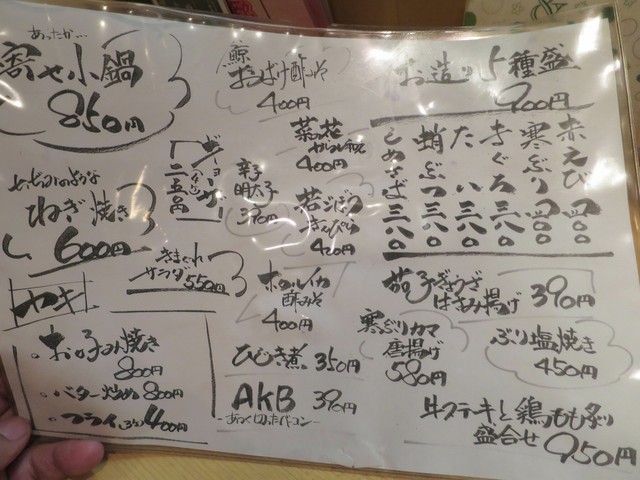 あったか…
寄せ小鍋
850円
鯨
おばけ酢みそ
400円
お造り5種盛
900円
赤えび 400
寒ぶり 400
まぐろ 380
たい 380
蛸ぶつ 380
しめさば 380
菜の花
からし和え
400円
ギョーザー
二五〇円
辛子
明太子
390円
若ごぼう
きんぴら
420円
ねぎ焼き
600円
サラダ 550円
ホタルイカ
酢みそ
400円
茄子ぎょうざ
はさみ揚げ 390円
カキ
・お好み焼き
800円
・バター炒め 800円
・フライ 400円
ひじき煮 350円
AKB 390円
-あつく切ったベーコン-
寒ぶりカマ
唐揚げ
580円
ぶり塩焼き
450円
牛ステーキと鶏もも炙り
盛合せ 950円